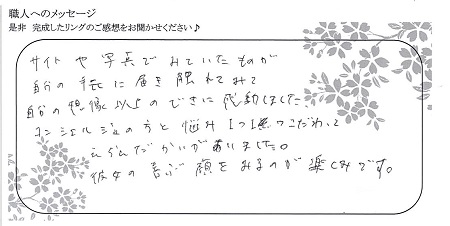 職人へのメッセージ
是非 完成したリングのご感想をお聞かせください♪
サイトや写真でみていたものが
自分の手元に届き触れてみて
自分の想像以上のできに感動しました。
コンシェルジュの方と悩み1つ1つこだわって
えらんだかいがありました。
彼女の喜ぶ顔をみるのが楽しみです。